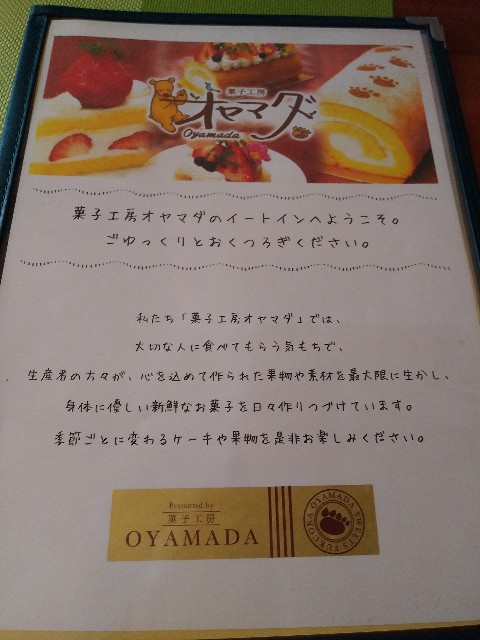 菓子工房
オヤマダ
Oyamada
菓子工房オヤマダのイートインへようこそ。
ごゆっくりとおくつろぎください。
私たち「菓子工房オヤマダ」では、
大切な人に食べてもらう気もちで、
生産者の方々が、心を込めて作られた果物や素材を最大限に生かし、
身体に優しい新鮮なお菓子を日々作りつづけています。
季節ごとに変わるケーキや果物を是非お楽しみください。
Presented by
菓子工房
OYAMADA
OYAMADA SWEETS FUKUOKA